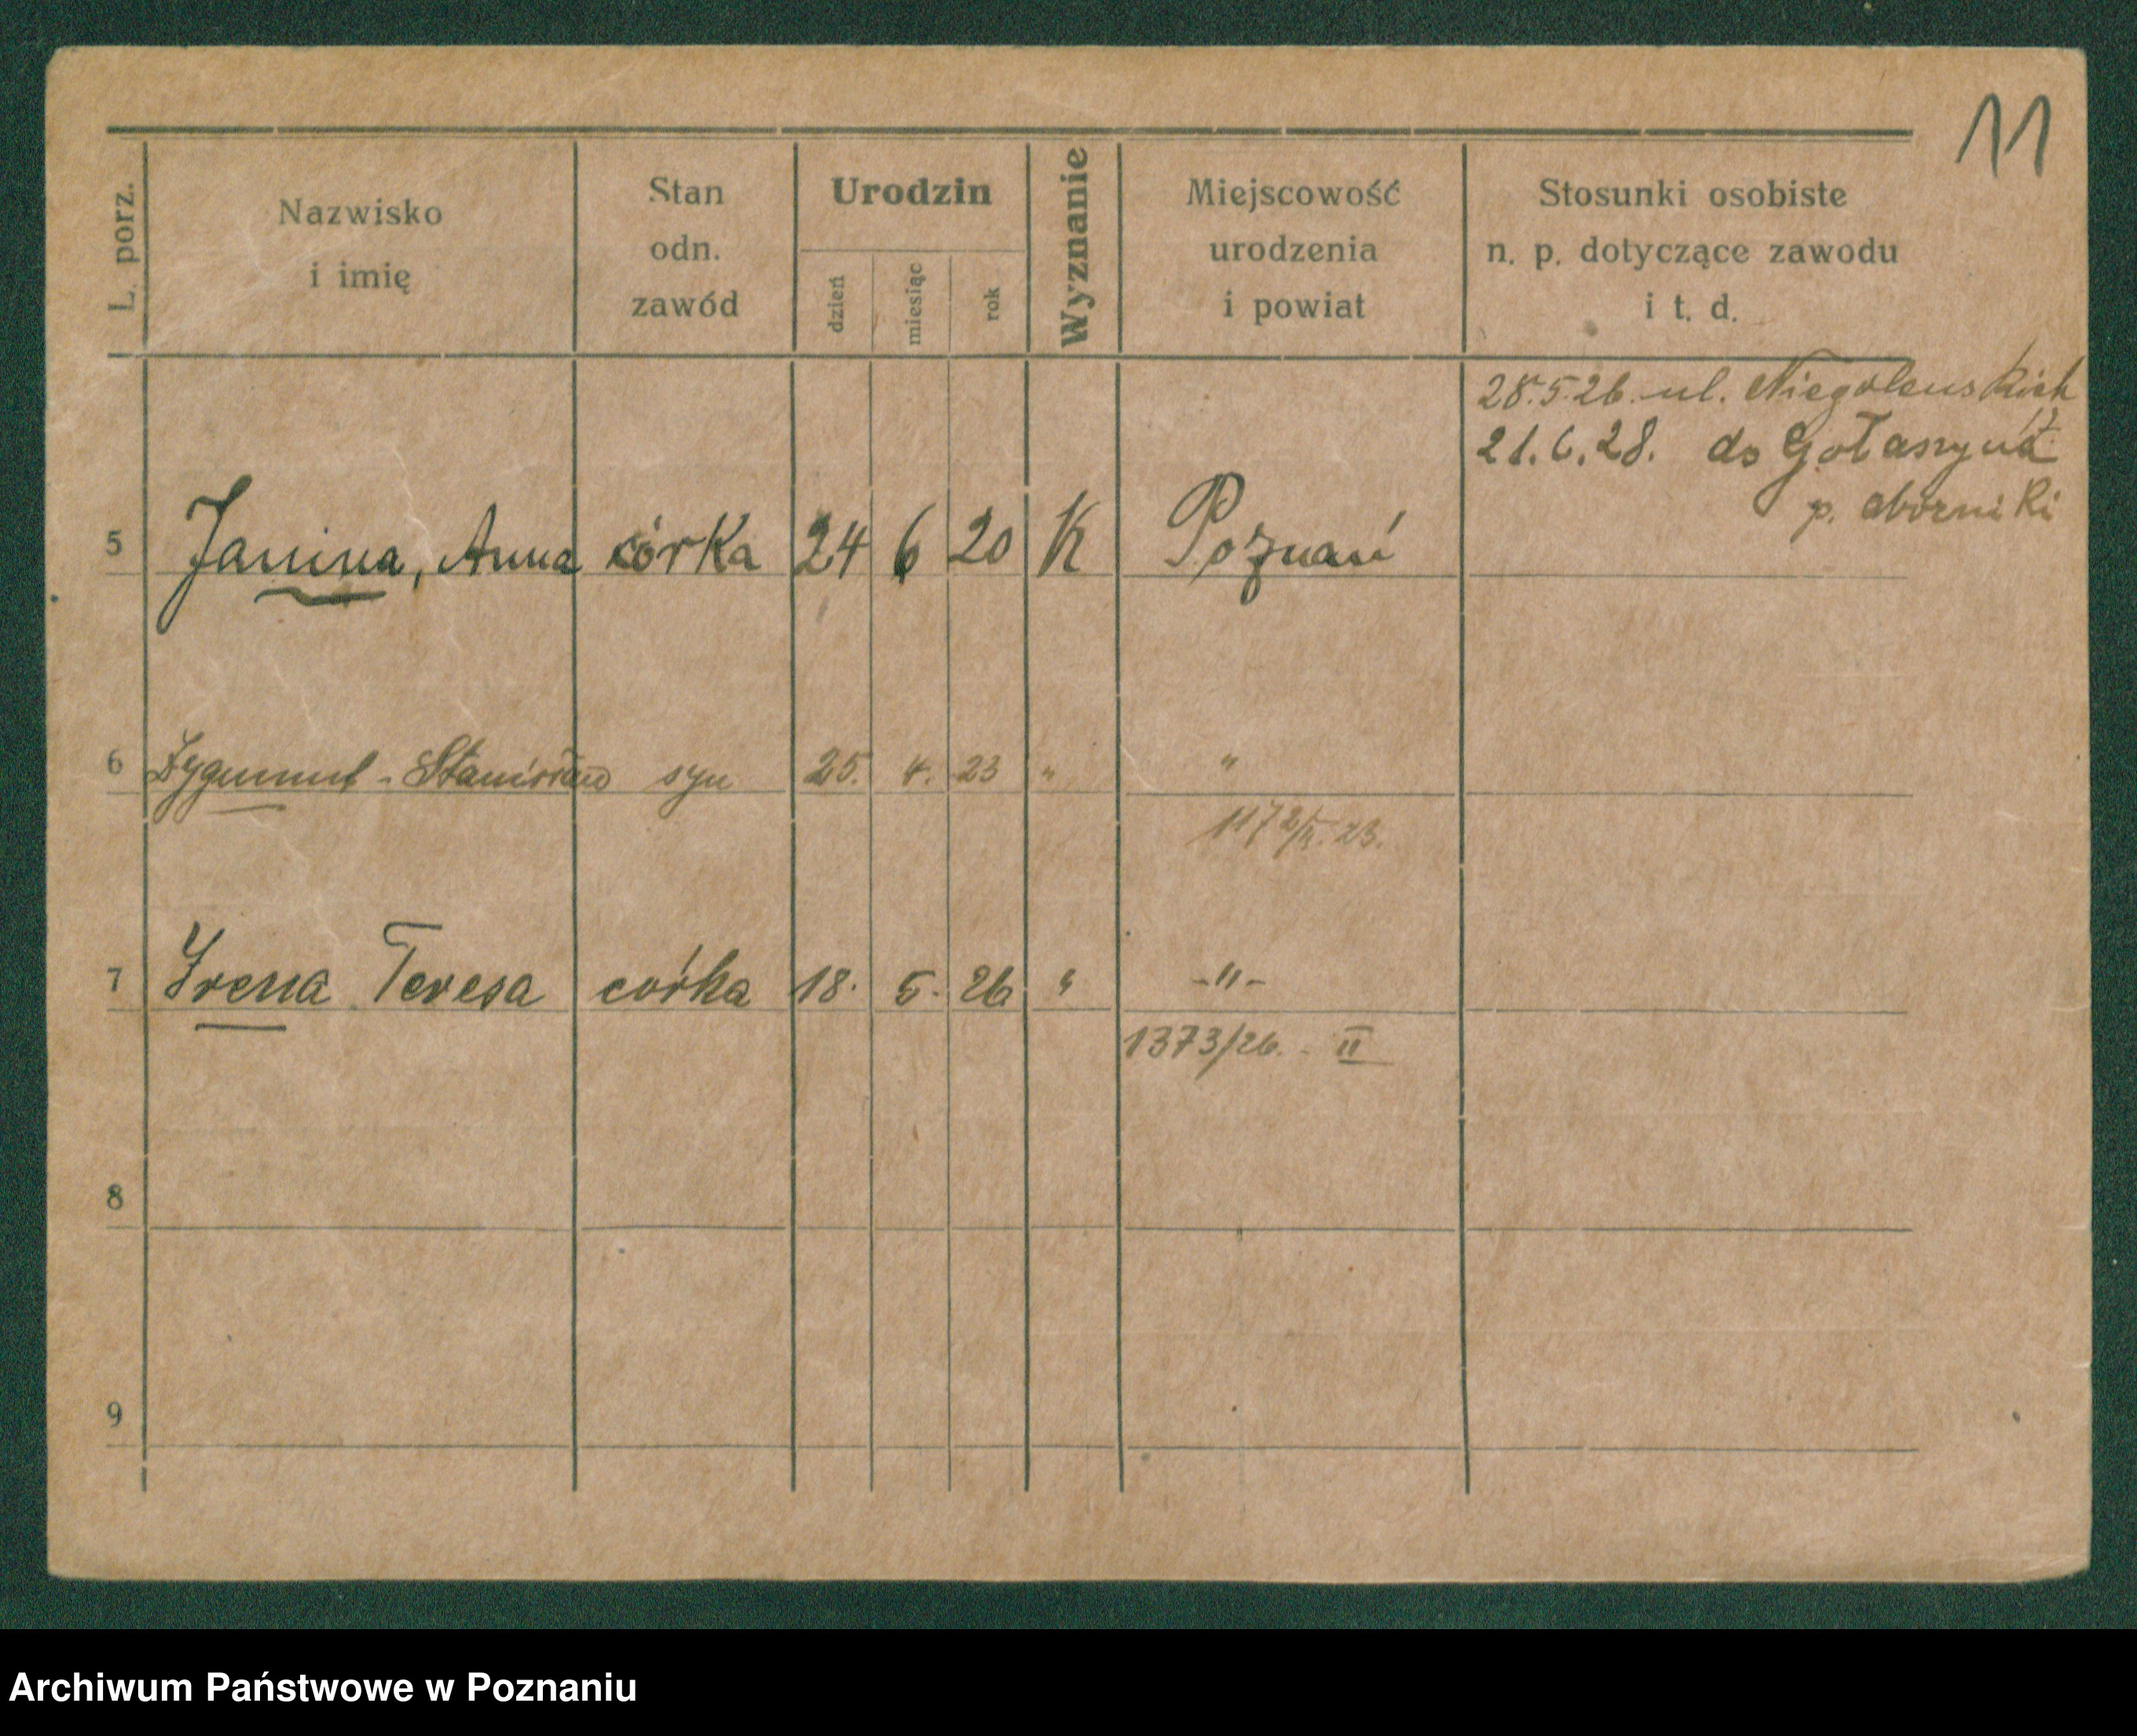 11
L. porz.
Nazwisko
i imię
Stan
odn.
zawód
Urodzin
dzień
miesiąc
rok
Wyznanie
Miejscowość
urodzenia
i powiat
Stosunki osobiste
n. p. dotyczące zawodu
i t. d.
28.5.26. ul. Niegolewskich
21.6.28. do Gołaszyna
p. oborniki
5 Janina, Anna córka 24 6 20 K Poznań
6 Zygmunt - Stanisław syn 25. 4. 23 " "
7 Irena Teresa córka 18. 5. 26 " -"-
1373/26. - II
8
9
Archiwum Państwowe w Poznaniu